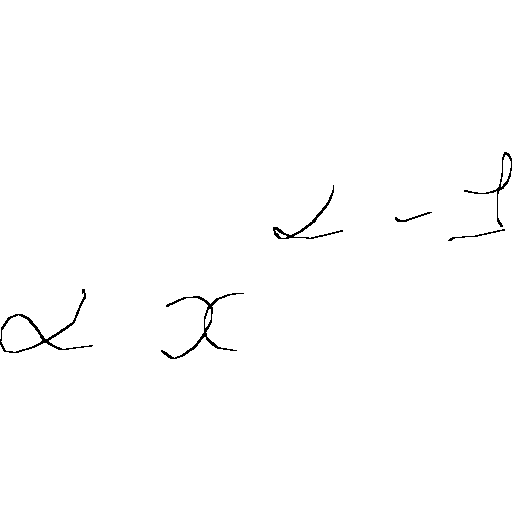 αx^{α-1}